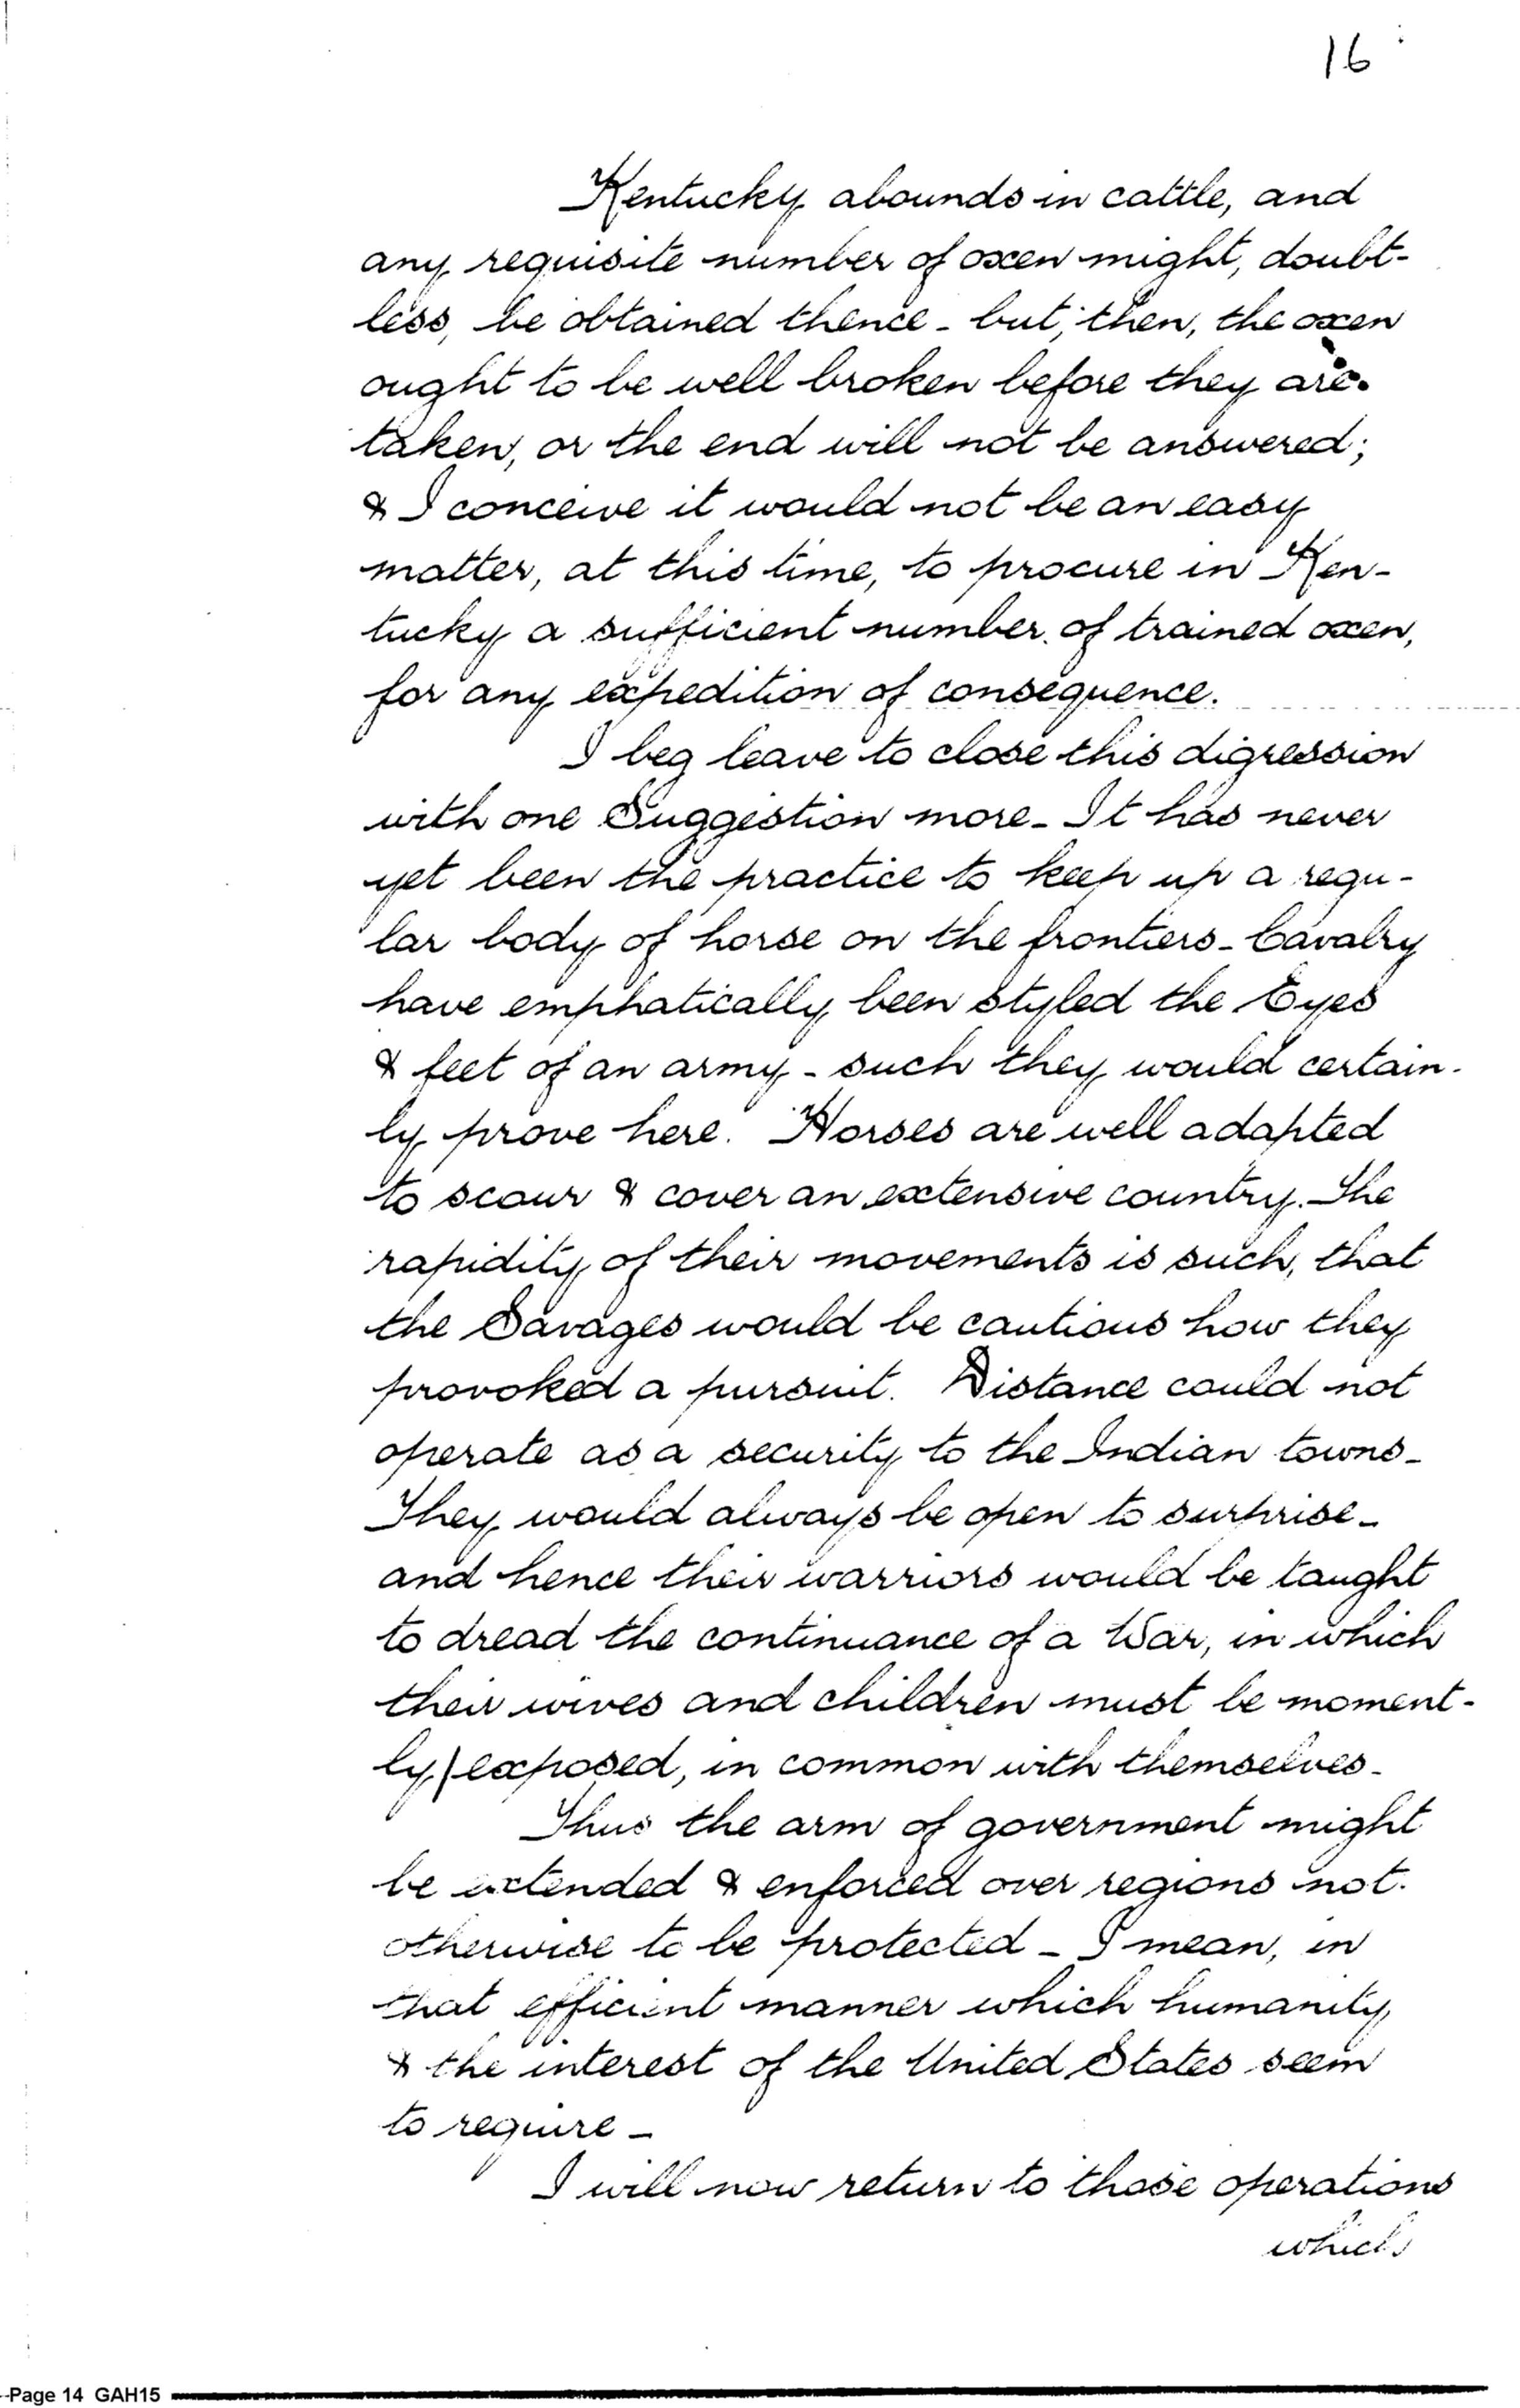 16
Kentucky abounds in cattle, and
any requisite number of oxen might, doubt-
less, be obtained thence - but, then, the oxen
ought to be well broken before they are
taken, or the end will not be answered;
& I conceive it would not be an easy
matter, at this time, to procure in Ken-
tucky a sufficient number of trained oxen,
for any expedition of consequence.
I beg leave to close this digression
with one Suggestion more - It has never
yet been the practice to keep up a regu-
lar body of horse on the frontiers - Cavalry
have emphatically been styled the Eyes
& feet of an army - such they would certain-
ly prove here. Horses are well adapted
to scour & cover an extensive country. The
rapidity of their movements is such, that
the Savages would be cautious how they
provoked a pursuit. Distance could not
operate as a security to the Indian towns -
They would always be open to surprise -
and hence their warriors would be taught
to dread the continuance of a War, in which
their wives and children must be moment-
ly exposed, in common with themselves -
Thus the arm of government might
be extended & enforced over regions not
otherwise to be protected - I mean, in
that efficient manner which humanity
& the interest of the United States seem
to require -
I will now return to those operations
which
Page 14 GAH15